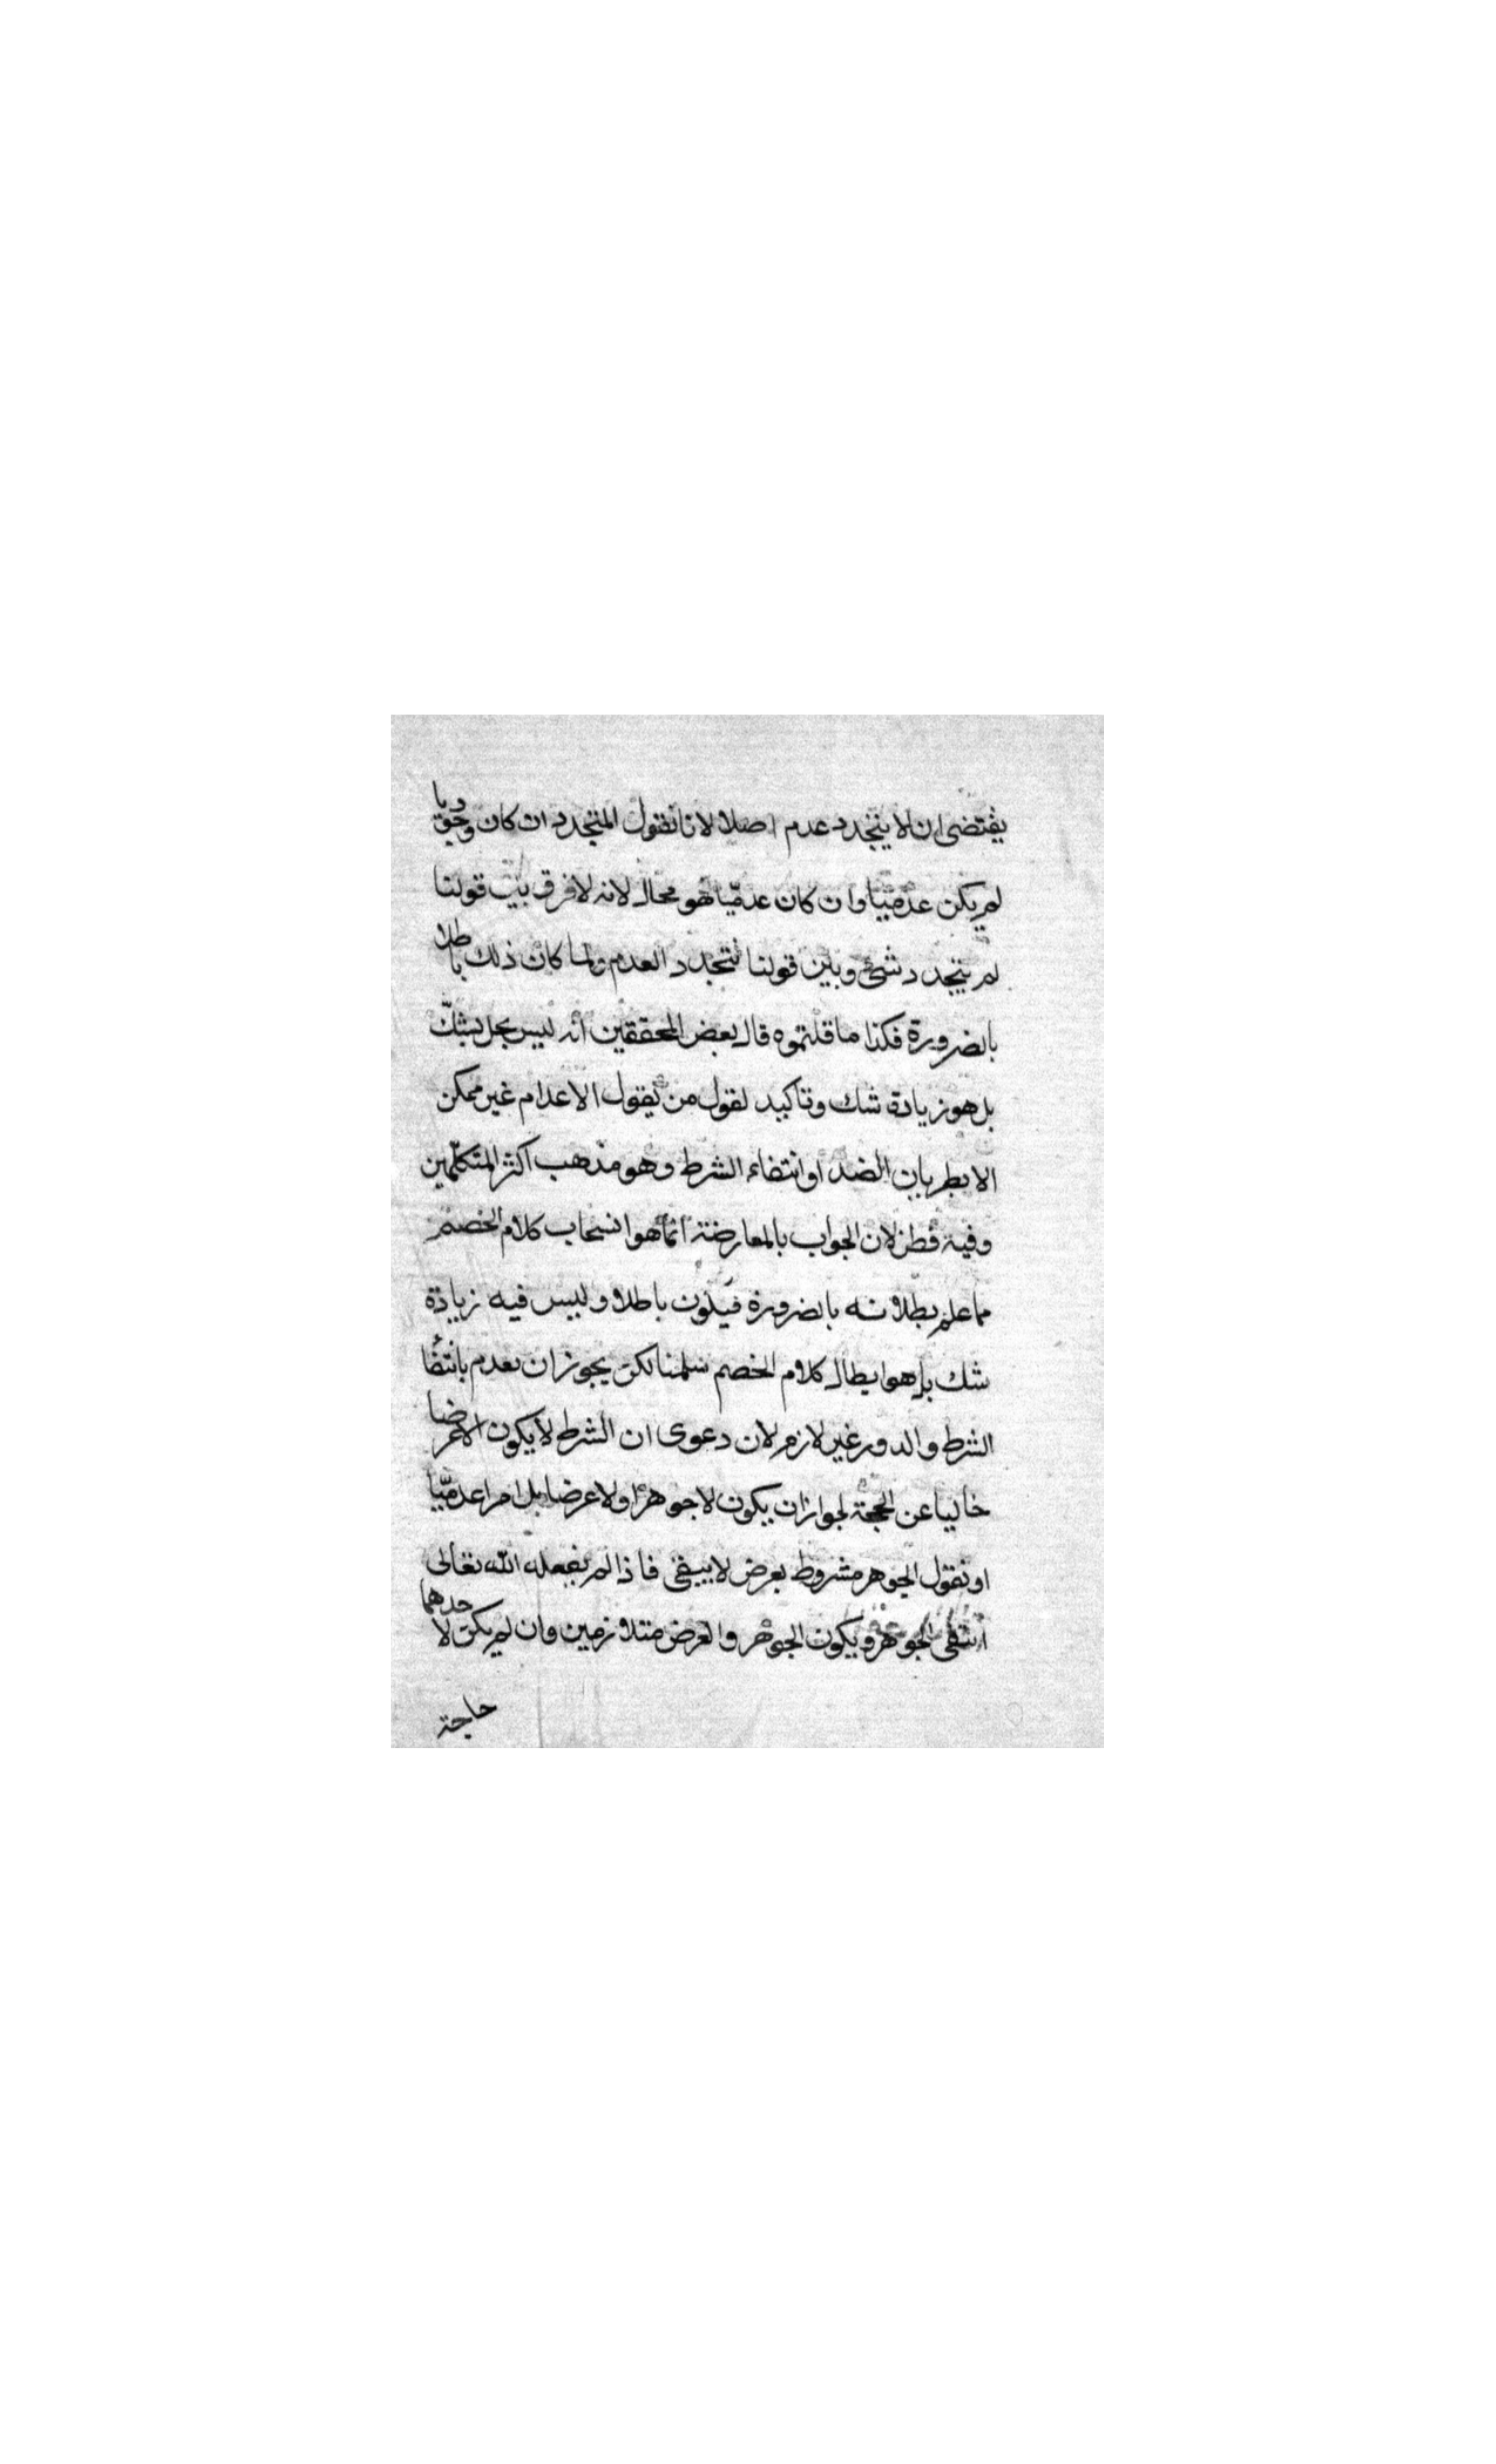 يقتضى ان لا يتجدد عدم اصلا لانا نقول المتجدد ان كان وجوديا
لم يكن عدميّا وان كان عدميّا فهو محال لانه لا فرق بين قولنا
لم يتجدد شئ وبين قولنا تتجدد العدم ولما كان ذلك باطلا
بالضرورة فكذا ما قلتموه قال بعض المحققين انه ليس بحل لشكّ
بل هو زيادة شك وتاكيد لقول من يقول الاعدام غير ممكن
الا بطريان الضد او انتفاء الشرط وهو مذهب اكثر المتكلمين
وفيه لان الجواب بالمعارضة انما هو انسحاب كلام الخصم
مما علم بطلانه بالضرورة فيكون باطلا وليس فيه زيادة
شك بل هو ابطال كلام الخصم سلمنا لكن يجوز ان يعدم بانتفا
الشرط والدور غير لازم لان دعوى ان الشرط لا يكون الا عرضا
خاليا عن الحجة لجواز ان يكون لا جوهرا ولا عرضا بل امرا عدميّا
او نقول الجوهر مشروط بعرض لا يبقى فاذا لم يفعله الله تعالى
انتفى الجوهر ويكون الجوهر والعرض متلازمين وان لم يكن لاحدهما
حاجة